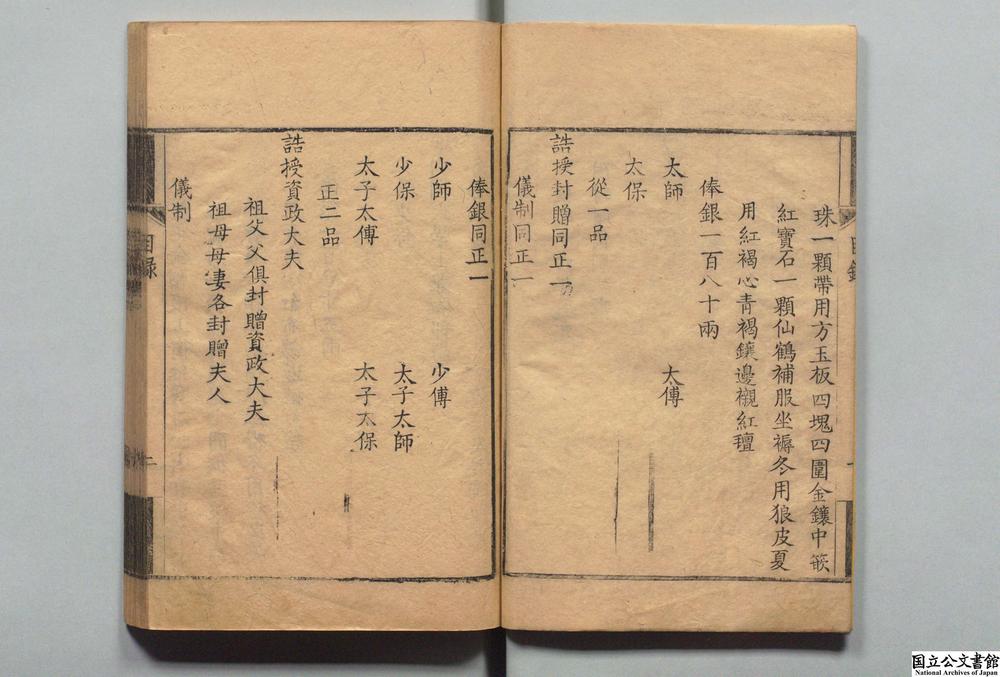 珠一顆帶用方玉板四塊四圍金鑲中嵌
紅寶石一顆仙鶴補服坐褥冬用狼皮夏
用紅褐心青褐鑲邊襯紅氊
俸銀一百八十兩
太師　太傅
太保
從一品
誥授封贈同正一
儀制同正一
俸銀同正一
少師　少傅
少保　太子太師
太子太傅　太子太保
正二品
誥授資政大夫
祖父父俱封贈資政大夫
祖母母妻各封贈夫人
儀制
目錄
二
目錄
一
国立公文書館
National Archives of Japan